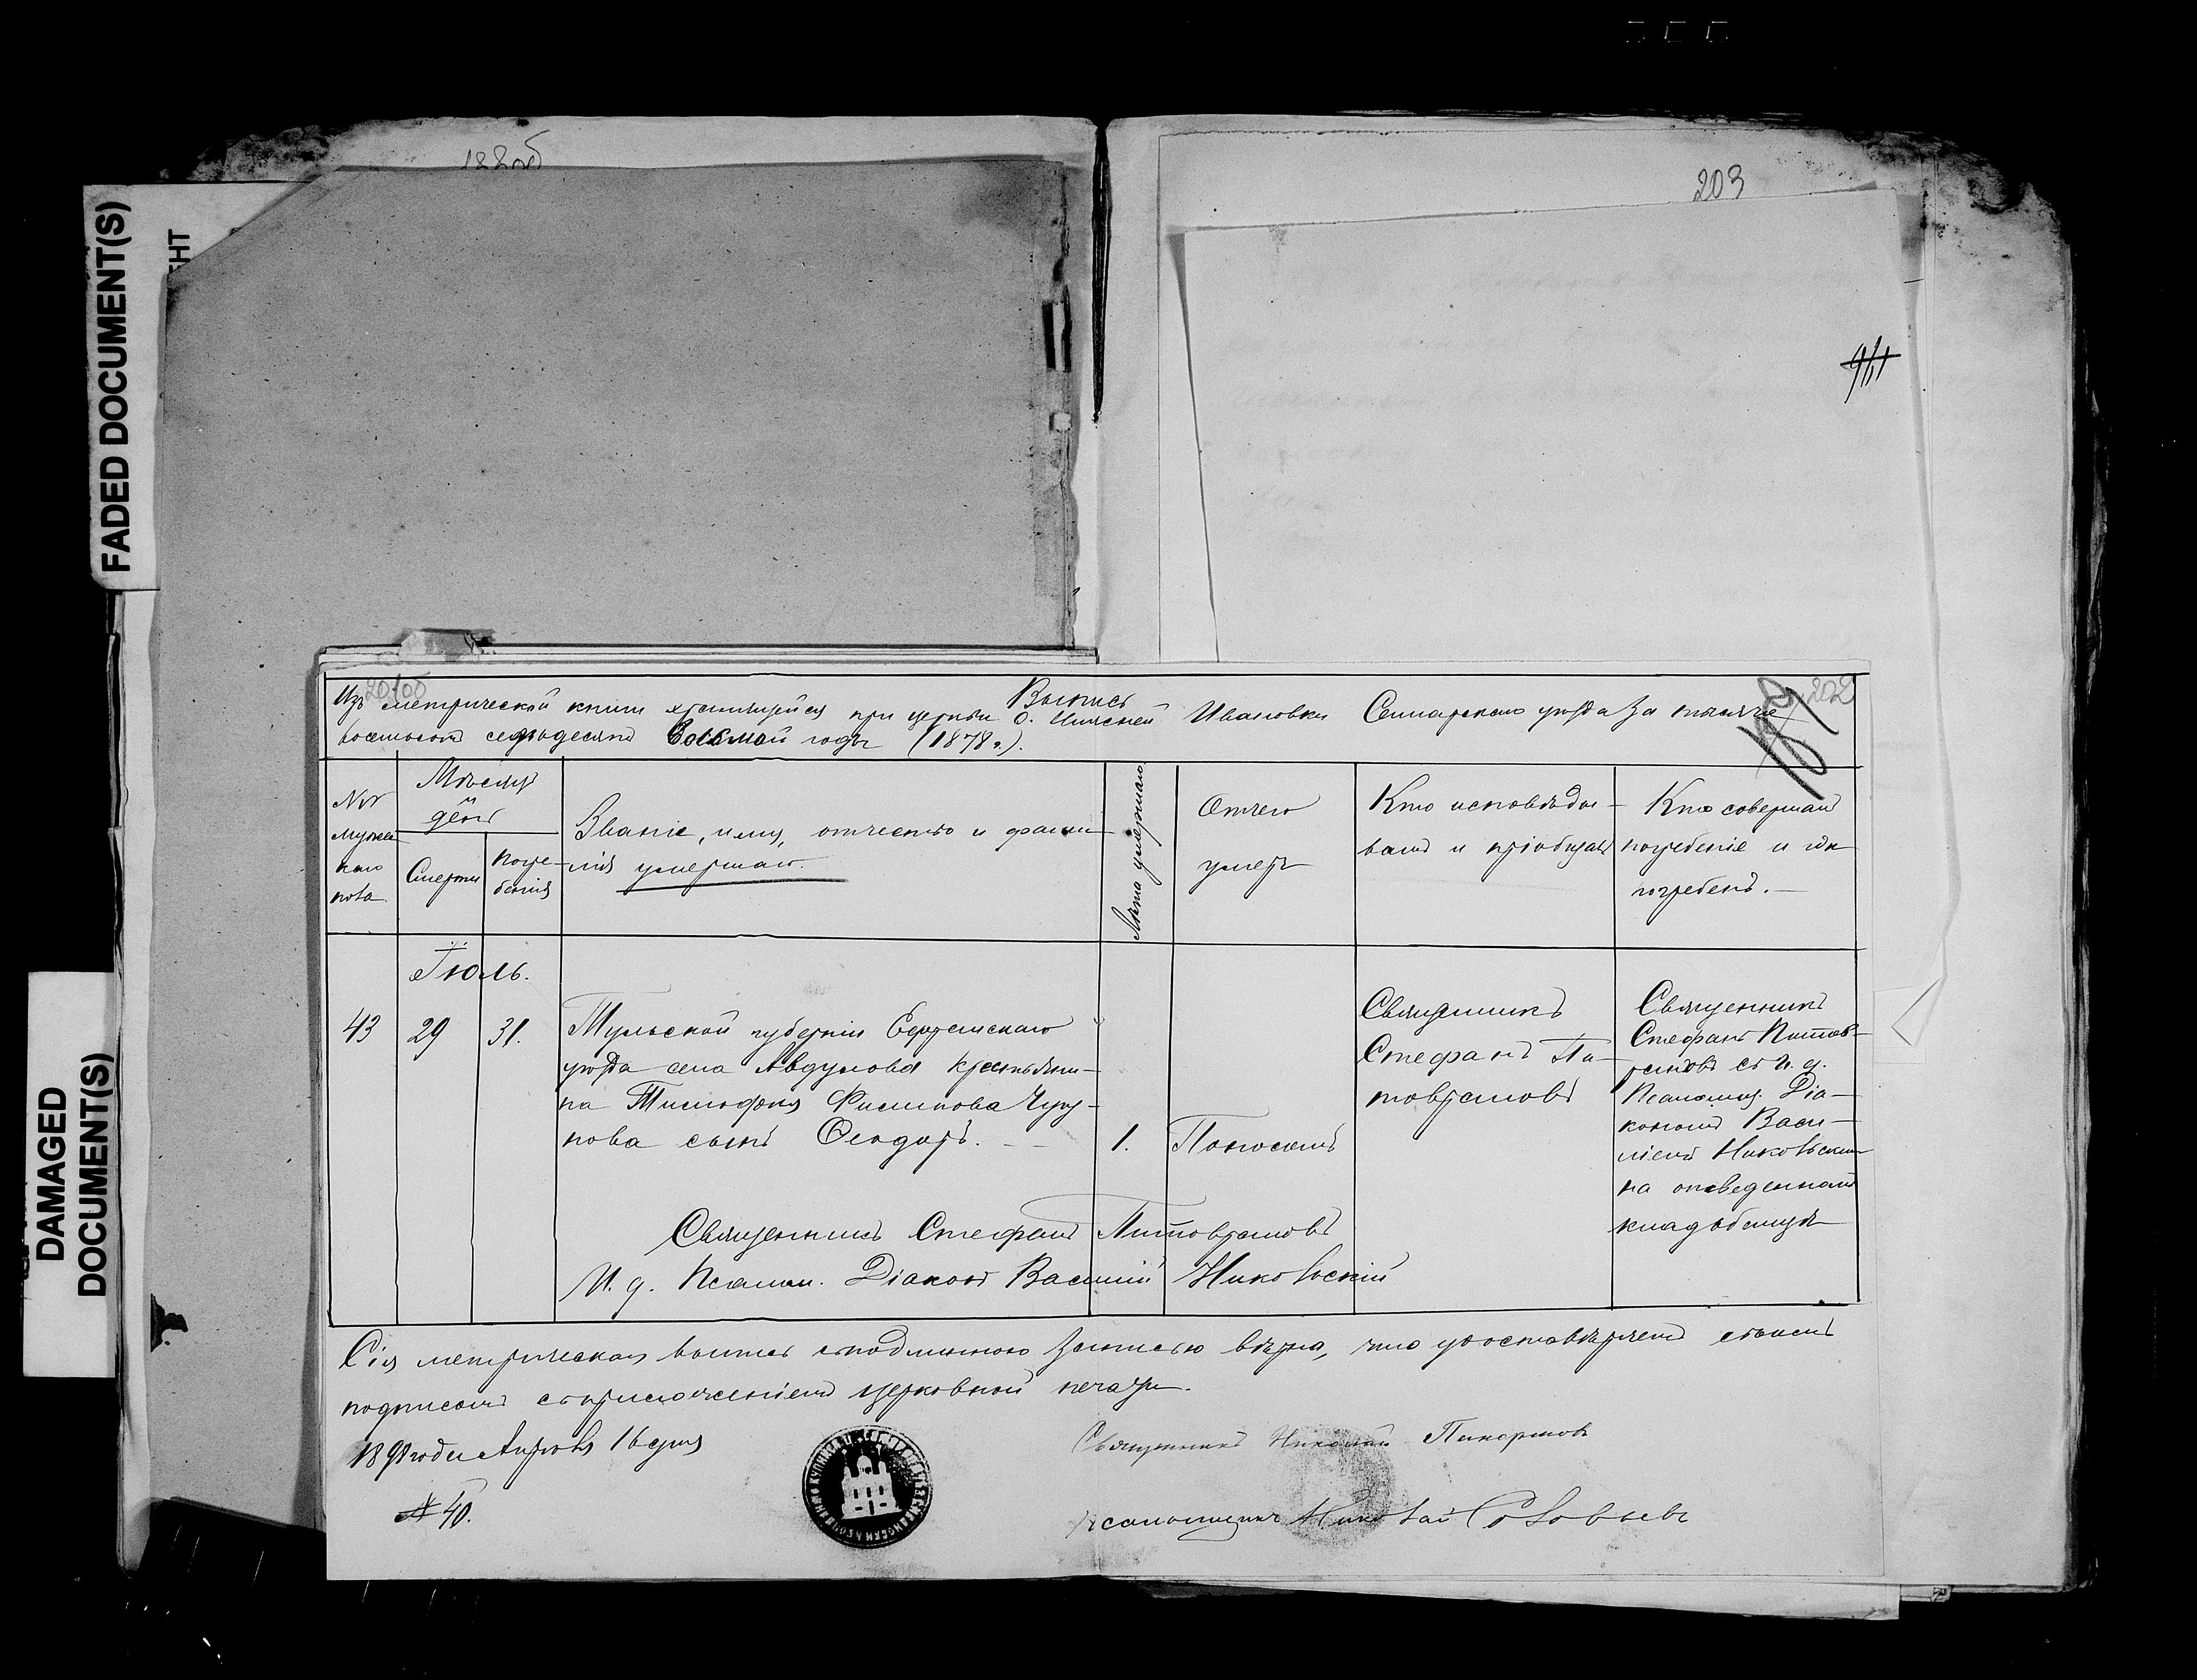 188об
203
FADED DOCUMENT(S)
DAMAGED
DOCUMENT(S)
201об
202
Выпись
Изъ метрической книги хранящейся при церкви с. Ивановки Самарскаго уѣзда за тысяча
восемьсотъ семьдесятъ восьмой годъ (1878 г.).
№№
мужеска
го
пола
Мѣсяцъ
и
день
Смерти
Погре-
бенія
Званіе, имя, отчество и фами-
лія умершаго.
Лѣта умершаго
Отчего
умеръ
Кто исповѣды-
валъ и пріобщалъ
Кто совершалъ
погребеніе и гдѣ
погребенъ.
Іюль.
43
29
31.
Тульской губерніи Ефремскаго
уѣзда села Авдулова крестьяни-
на Тимофея Филипова Чуку-
нова сынъ Ѳеодоръ.
1.
Поносомъ
Священникъ
Стефанъ Пи-
товрановъ
Священникъ
Стефанъ Питов-
рановъ съ и. д.
Псаломщ. Діа-
кономъ Васи-
ліемъ Никольскимъ
на отведенномъ
кладбищѣ
Священникъ Стефанъ Питоврановъ
И. д. Псалом. Діаконъ Василій Никольскій
Сія метрическая выпись съ подлинною записью вѣрна, что удостовѣряемъ своимъ
подписомъ съ приложеніемъ церковной печати.
1891 года Апрѣля 16 дня
№ 40.
Священникъ Николай
Псаломщикъ Николай Соловьевъ